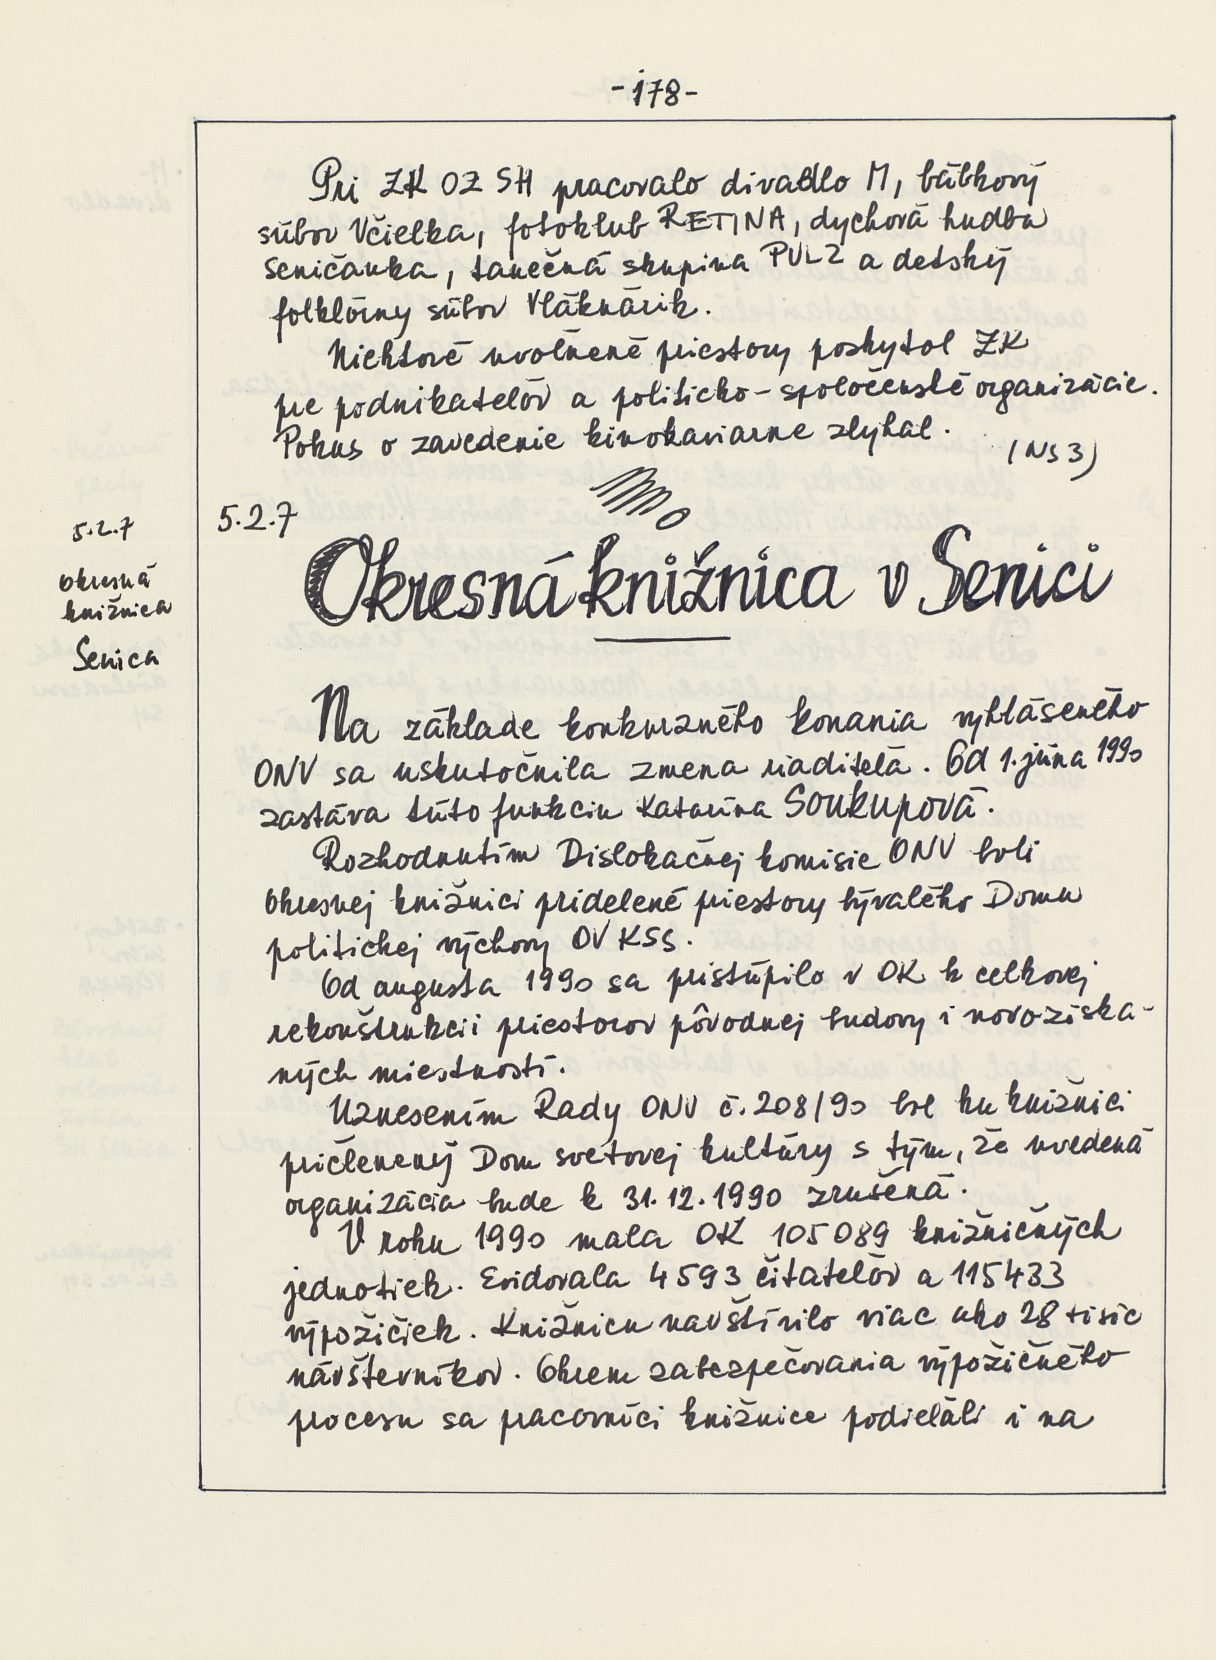 -178-
Pri ZK OZ SH pracovalo divadlo M, bábkový
súbor Včielka, fotoklub RETINA, dychová hudba
Seničanka, tanečná skupina PULZ a detský
folklórny súbor Vláknárik.
Niektoré uvoľnené priestory poskytol ZK
pre podnikateľov a politicko-spoločenské organizácie.
Pokus o zavedenie kinokaviarne zlyhal.
(NS 3)
5.2.7
Okresná
knižnica
Senica
5.2.7
Okresná knižnica v Senici
Na základe konkurzného konania vyhláseného
ONV sa uskutočnila zmena riaditeľa. Od 1. júna 1990
zastáva túto funkciu Katarína Soukupová.
Rozhodnutím Dislokačnej komisie ONV boli
okresnej knižnici pridelené priestory bývalého Domu
politickej výchovy OV KSS.
Od augusta 1990 sa pristúpilo v OK k celkovej
rekonštrukcii priestorov pôvodnej budovy i novozíska-
ných miestností.
Uznesením Rady ONV č. 208/90 bol ku knižnici
pričlenený Dom svetovej kultúry s tým, že uvedená
organizácia bude k 31.12.1990 zrušená.
V roku 1990 mala OK 105 089 knižničných
jednotiek. Evidovala 4 593 čitateľov a 115433
výpožičiek. Knižnicu navštívilo viac ako 28 tisíc
návštevníkov. Okrem zabezpečovania výpožičného
procesu sa pracovníci knižnice podieľali i na